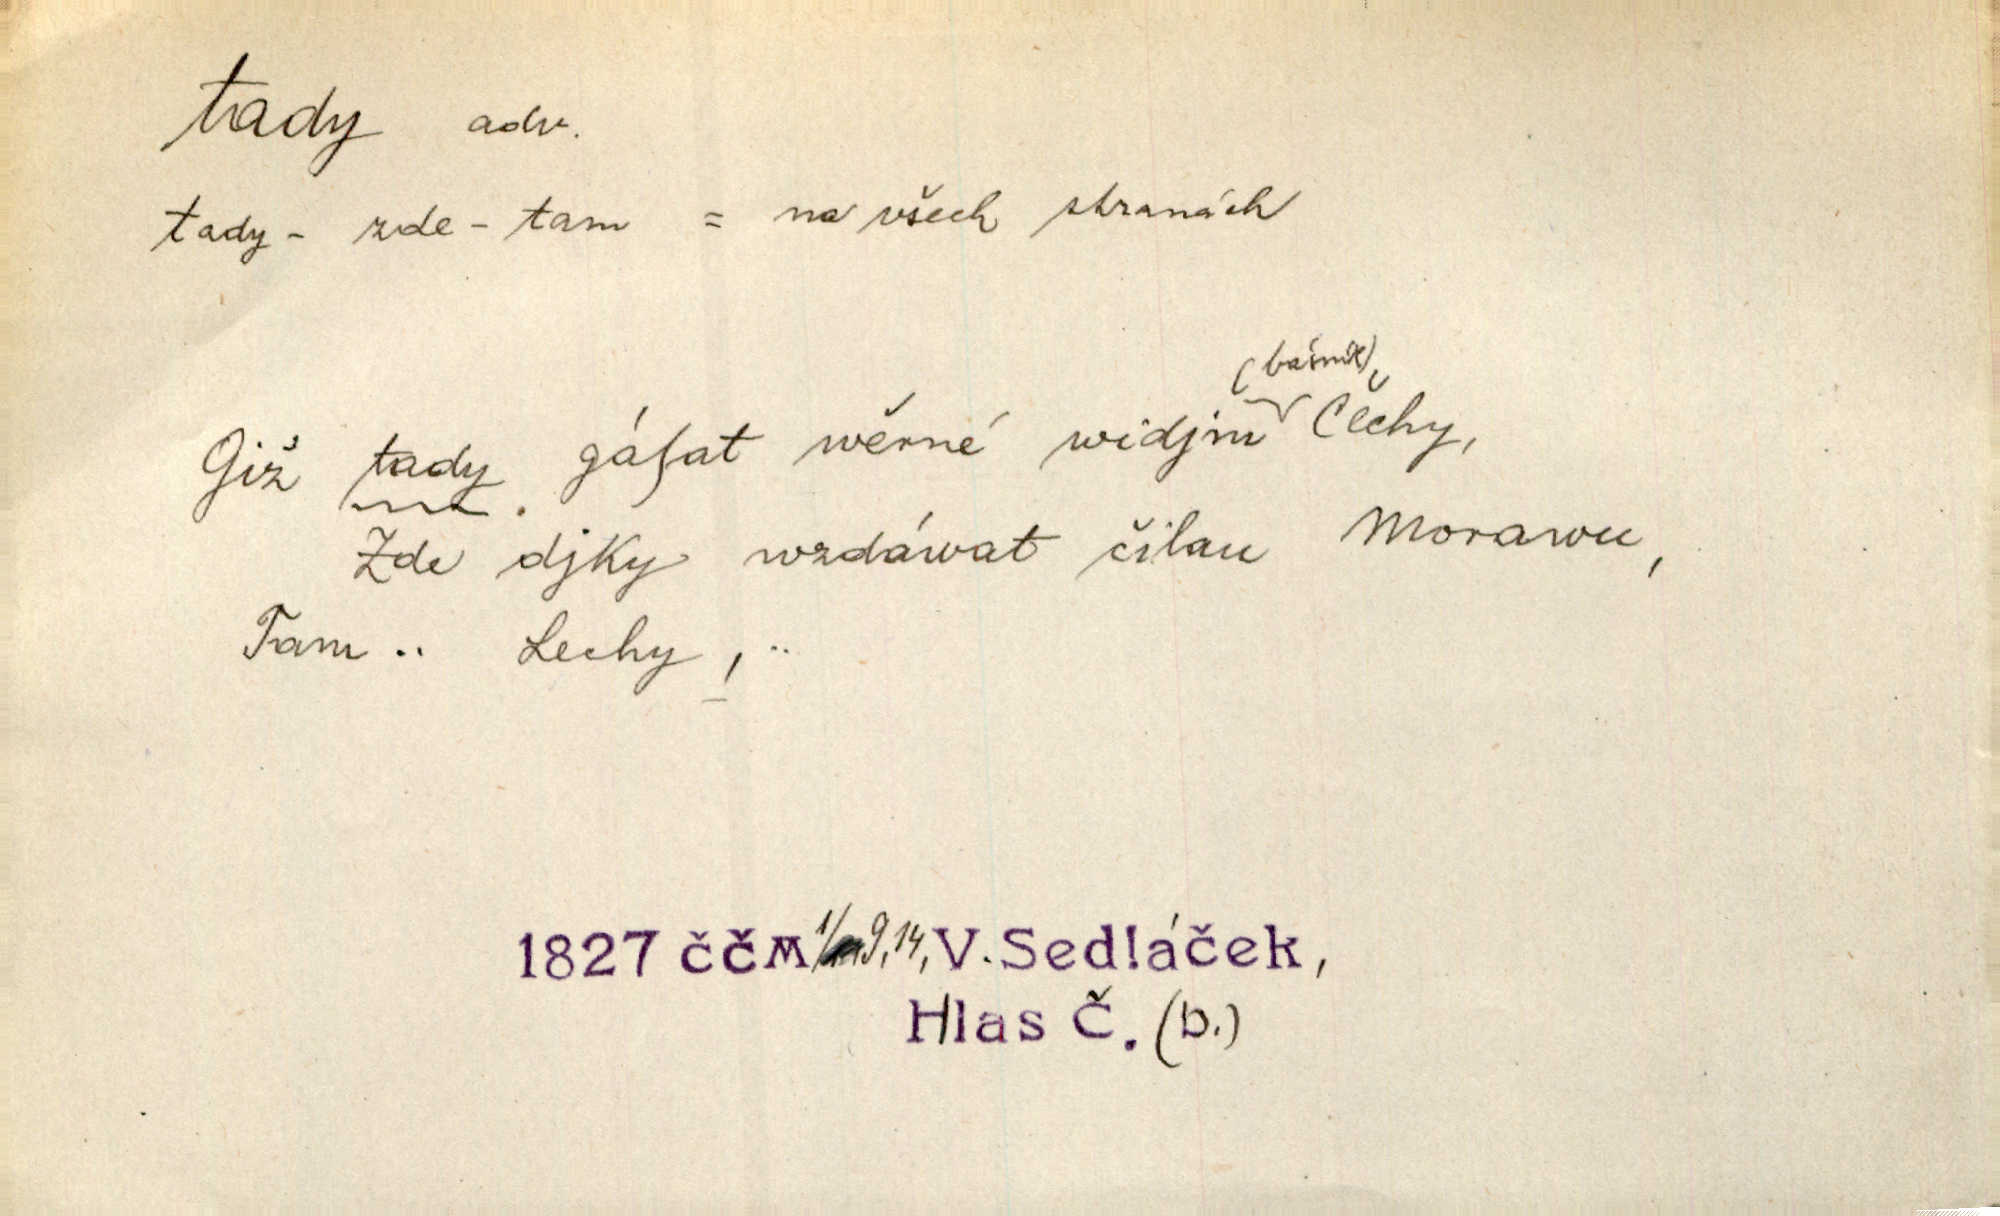 tady adv.
tady - zde - tam = na všech stranách
(básník)
Giž tady gásat wěrné widjm Čechy,
Zde djky wzdáwat čilau Morawu,
Tam .. Lechy, ..
1827 ČČM 1/ 9,14, V. Sedláček,
Hlas Č. (b.)